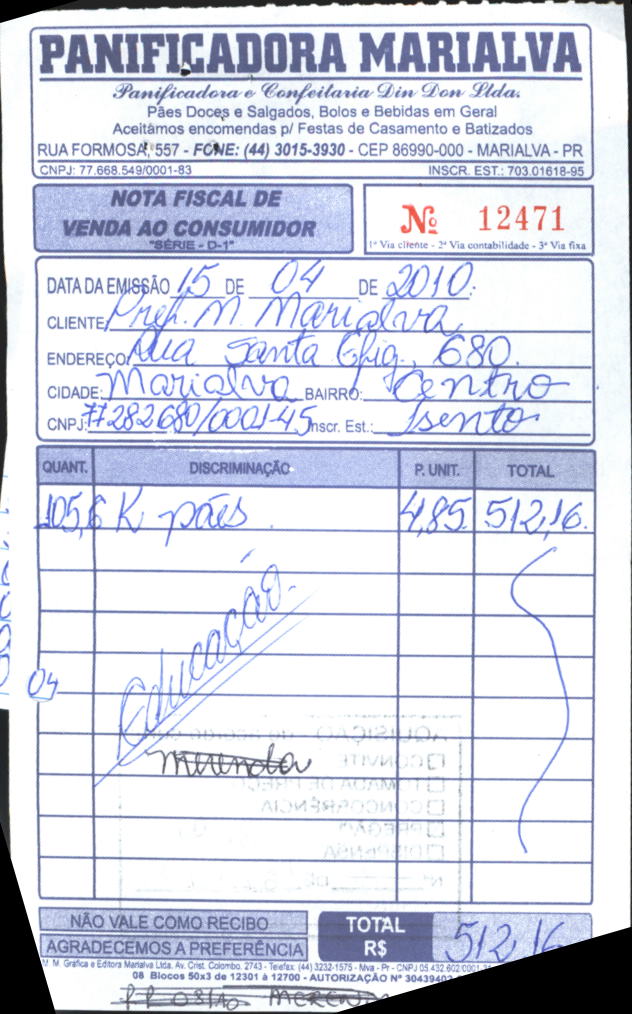 PANIFICADORA MARIALVA
Panificadora e Confeitaria Din Don Ltda.
Pães Doces e Salgados, Bolos e Bebidas em Geral
Aceitamos encomendas p/ Festas de Casamento e Batizados
RUA FORMOSA, 557 - FONE: (44) 3015-3930 - CEP 86990-000 - MARIALVA - PR
CNPJ: 77.668.549/0001-83 INSCR. EST.: 703.01618-95
NOTA FISCAL DE
VENDA AO CONSUMIDOR
"SÉRIE - D-1"
Nº 12471
1ª Via cliente - 2ª Via contabilidade - 3ª Via fixa
DATA DA EMISSÃO 15 DE 04 DE 2010
CLIENTE Pref. M. Marialva
ENDEREÇO: Rua Santa Efig. 680
CIDADE: Marialva BAIRRO: Centro
CNPJ: 77282680/0001-45 Inscr. Est.: Isento
QUANT. DISCRIMINAÇÃO P. UNIT. TOTAL
105,6 K pães 4,85 512,16
Educação
04
merenda
AQUISIÇÃO
CONVITE
TOMADA DE PREÇO
CONCORRÊNCIA
PREGÃO
DISPENSA
Nº DE
NÃO VALE COMO RECIBO
AGRADECEMOS A PREFERÊNCIA
TOTAL
R$ 512,16
M. M. Gráfica e Editora Marialva Ltda. Av. Crist. Colombo, 2743 - Telefax: (44) 3232-1575 - Mva - Pr - CNPJ 05.432.602/0001
08 Blocos 50x3 de 12301 à 12700 - AUTORIZAÇÃO Nº 30439402